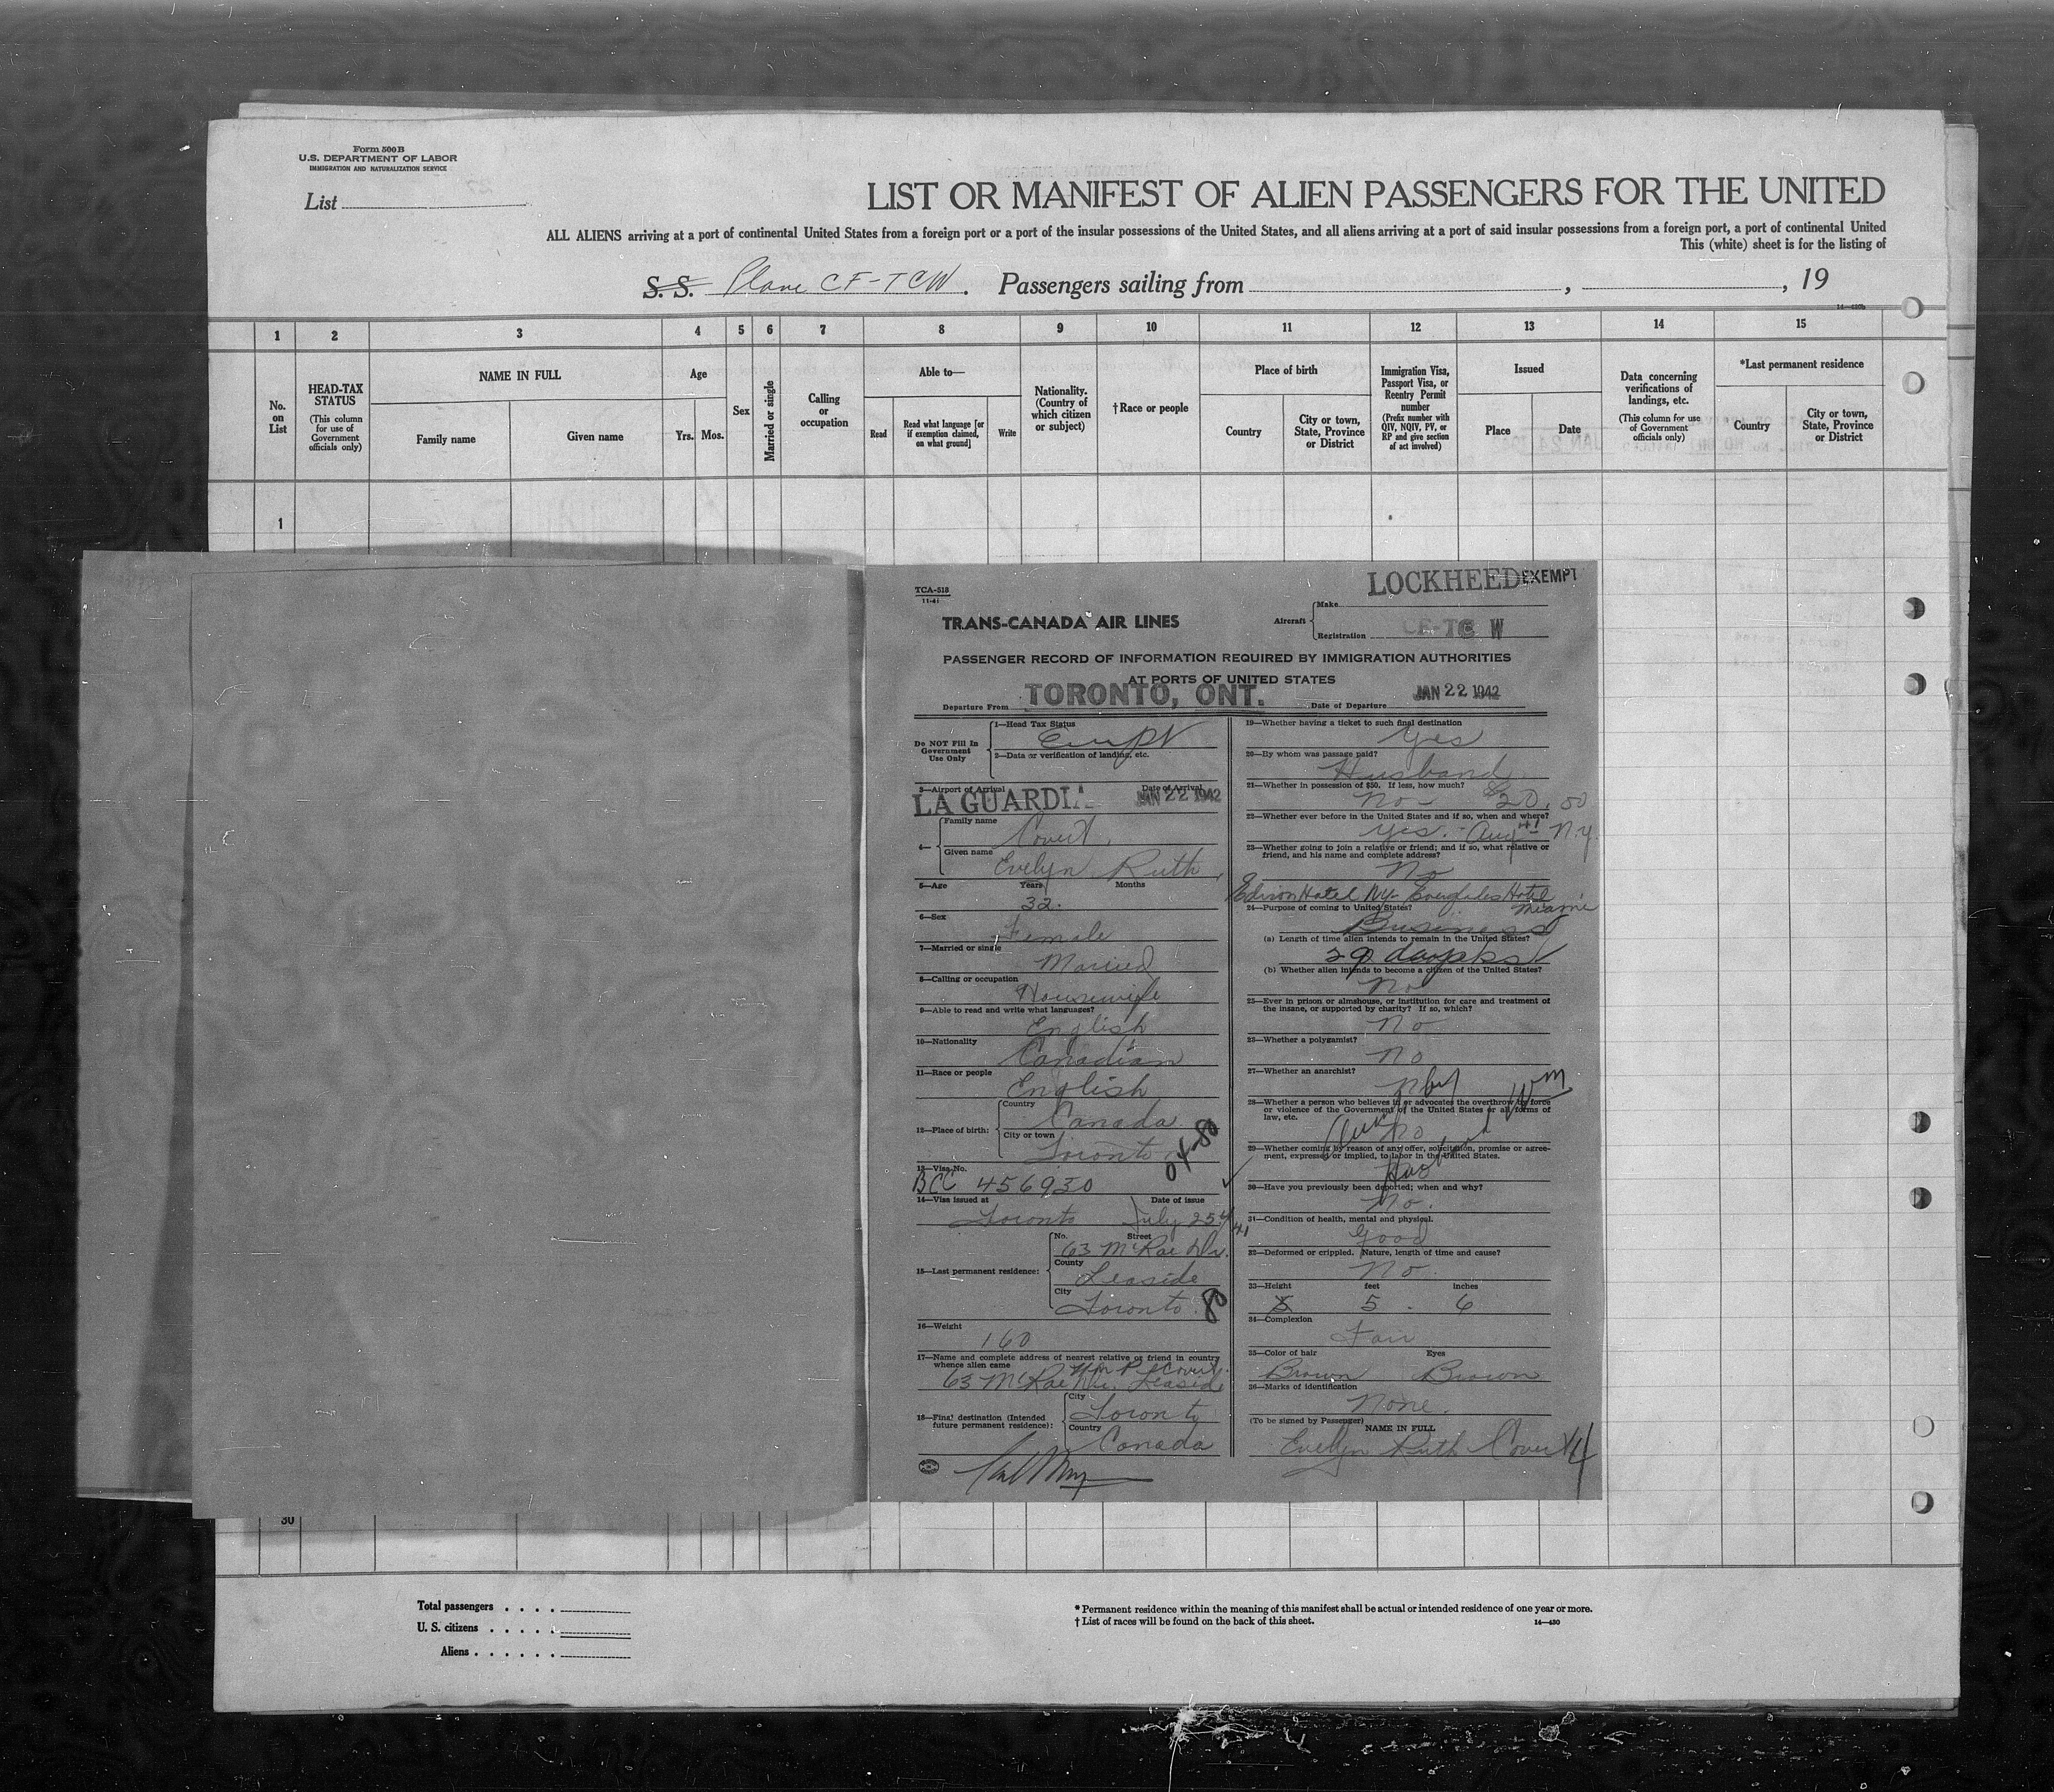 Form 500B
U.S. DEPARTMENT OF LABOR
IMMIGRATION AND NATURALIZATION SERVICE
List
LIST OR MANIFEST OF ALIEN PASSENGERS FOR THE UNITED
ALL ALIENS arriving at a port of continental United States from a foreign port or a port of the insular possessions of the United States, and all aliens arriving at a port of said insular possessions from a foreign port, a port of continental United
This (white) sheet is for the listing of
S. S. Plane CF-TCW. Passengers sailing from , , 19
1 2 3 4 5 6 7 8 9 10 11 12 13 14 15
No. on List
HEAD-TAX STATUS
(This column for use of Government officials only)
NAME IN FULL
Family name
Given name
Age
Yrs. Mos.
Sex
Married or single
Calling or occupation
Able to—
Read
Read what language [or if exemption claimed, on what ground]
Write
Nationality. (Country of which citizen or subject)
†Race or people
Place of birth
Country
City or town, State, Province or District
Immigration Visa, Passport Visa, or Reentry Permit number
(Prefix number with QIV, NQIV, PV, or RP and give section of act involved)
Issued
Place
Date
Data concerning verifications of landings, etc.
(This column for use of Government officials only)
*Last permanent residence
Country
City or town, State, Province or District
1
TCA-518
11-41
LOCKHEED EXEMPT
TRANS-CANADA AIR LINES
Aircraft
Make
Registration CF-TC W
PASSENGER RECORD OF INFORMATION REQUIRED BY IMMIGRATION AUTHORITIES
AT PORTS OF UNITED STATES
Departure From TORONTO, ONT. Date of Departure JAN 22 1942
Do NOT Fill In Government Use Only
1—Head Tax Status
2—Data or verification of landing, etc.
3—Airport of Arrival Date of Arrival
LA GUARDIA JAN 22 1942
4— Family name
Covert
Given name
Evelyn Ruth
5—Age Years Months
32.
6—Sex
Female
7—Married or single
Married
8—Calling or occupation
Housewife
9—Able to read and write what languages?
English
10—Nationality
Canadian
11—Race or people
English
12—Place of birth:
Country
Canada
City or town
Toronto
04-80
13—Visa No.
BCC 456930
14—Visa issued at Date of issue
Toronto July 25th/41
15—Last permanent residence:
No. Street
63 McRae Dr.
County
Leaside
City
Toronto. 80
16—Weight
160
17—Name and complete address of nearest relative or friend in country whence alien came
Wm P. Covert
63 McRae Dr. Leaside
18—Final destination (Intended future permanent residence):
City
Toronto
Country
Canada
19—Whether having a ticket to such final destination
Yes
20—By whom was passage paid?
Husband
21—Whether in possession of $50. If less, how much?
No - $20.00
22—Whether ever before in the United States and if so, when and where?
Yes. - Aug 41 - N.Y.
23—Whether going to join a relative or friend; and if so, what relative or friend, and his name and complete address?
No
Edison Hotel NY- Everglades Hotel Miami
24—Purpose of coming to United States?
Business
(a) Length of time alien intends to remain in the United States?
29 days
(b) Whether alien intends to become a citizen of the United States?
No
25—Ever in prison or almshouse, or institution for care and treatment of the insane, or supported by charity? If so, which?
No
26—Whether a polygamist?
No
27—Whether an anarchist?
28—Whether a person who believes in or advocates the overthrow by force or violence of the Government of the United States or all forms of law, etc.
No
29—Whether coming by reason of any offer, solicitation, promise or agreement, expressed or implied, to labor in the United States.
30—Have you previously been deported; when and why?
No.
31—Condition of health, mental and physical.
Good
32—Deformed or crippled. Nature, length of time and cause?
No.
33—Height feet inches
5 . 6
34—Complexion
Fair
35—Color of hair Eyes
Brown Brown
36—Marks of identification
None.
(To be signed by Passenger) NAME IN FULL
Evelyn Ruth Covert
30
Total passengers . . . .
U. S. citizens . . . . .
Aliens . . . . . .
* Permanent residence within the meaning of this manifest shall be actual or intended residence of one year or more.
† List of races will be found on the back of this sheet.
14—430